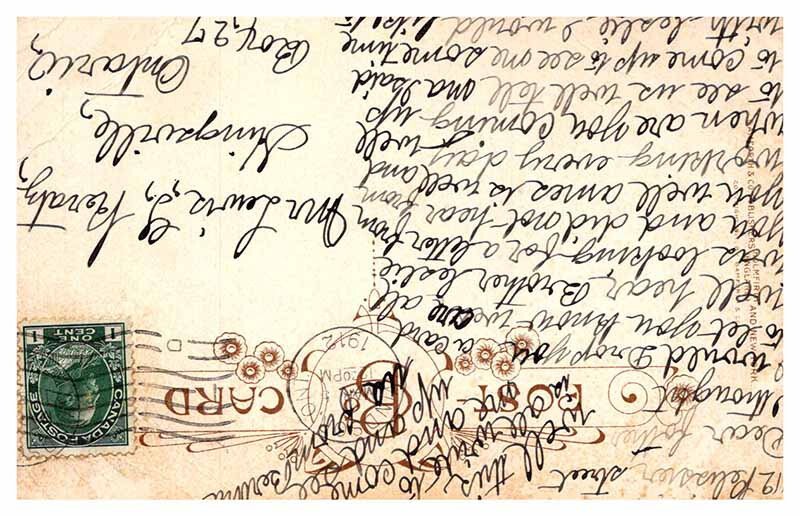 12 Pelissier street
Dear father
I thought
I would Drop you a card
to let you know we are all
well hear, Brother leslie
was looking, for a letter from
you and did not hear from
you well ames is well and
working every day well
when are you coming up
to see us well tell ma said
to come up to see me some time
with leslie I would like to
Well this
to come
up and
POST CARD
1912
CANADA POSTAGE
1 1
ONE
CENT
Mr Lewis, G,
Kingsville,
Ontario,
Box, 27